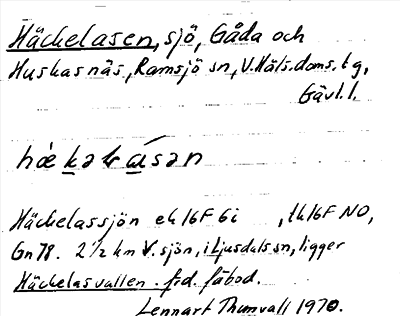 Häckelasen, sjö, Gåda och
Huskasnäs, Ramsjö sn, V. Häls. doms. tg,
Gävl. l.
hὰkəlåsən
Häckelassjön ek 16F 6i , tk 16F NO,
Gn 78. 2½ km V. sjön, i Ljusdals sn, ligger
Häckelasvallen. frd. fäbod.
Lennart Thunvall 1970.